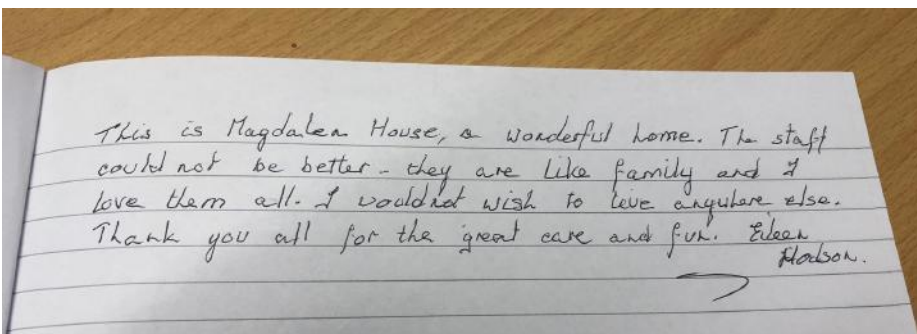 This is Magdalen House, a wonderful home. The staff
could not be better - they are like family and I
love them all. I would not wish to live anywhere else.
Thank you all for the great care and fun. Eileen
Hodson.